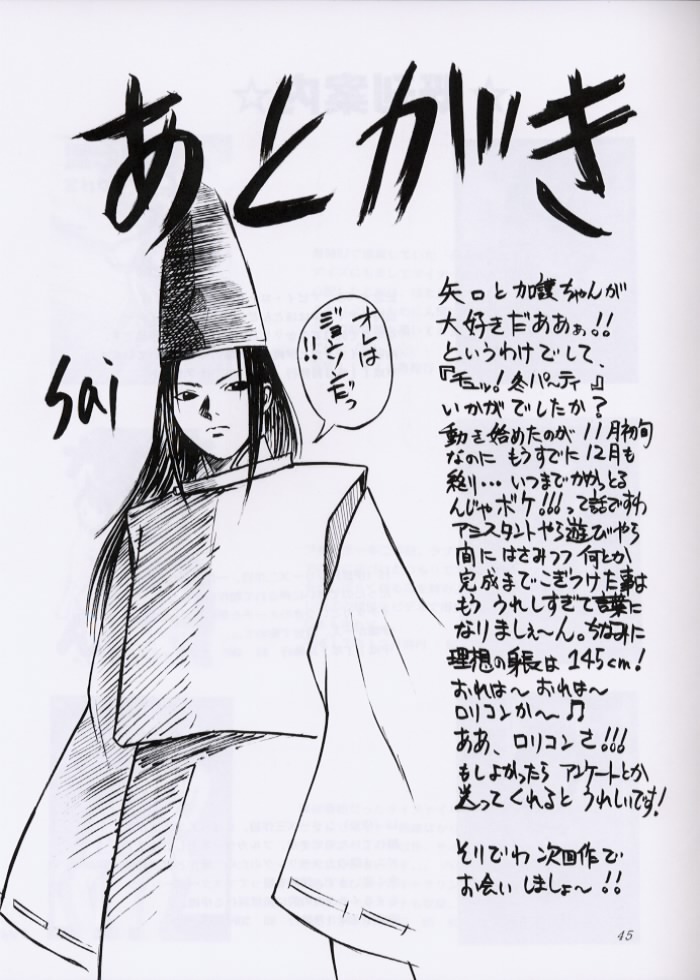 あとがき
sai
オレは
ジョンソンだっ
!!
矢口と加護ちゃんが
大好きだああぁ!!
というわけでして、
『モュッ!冬パーティ』
いかがでしたか?
動き始めたのが11月初旬
なのに もうすでに12月も
終り…いつまでかかっとる
んじゃボケ!!!って話ですわ
アシスタントやら遊びやら
間にはさみつつ何とか
完成までこぎつけた事は
もう うれしすぎて言葉に
なりましぇ〜ん。ちなみに
理想の身長は145cm!
おれは〜おれは〜
ロリコンか〜♫
ああ、ロリコンさ!!!
もしよかったら アンケートとか
送ってくれると うれしいです!
そりでわ 次回作で
お会いしましょ〜!!
45